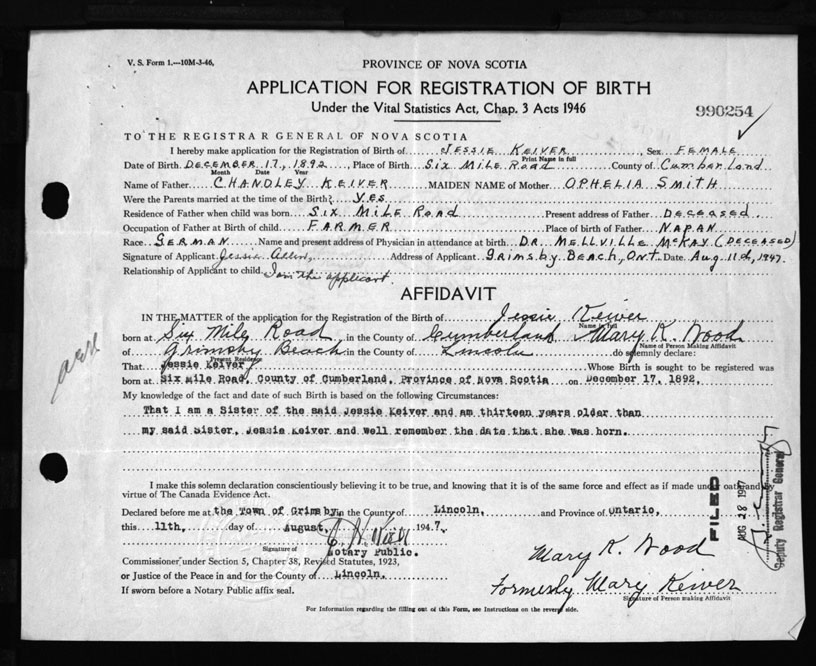 V. S. Form 1.—10M-3-46.
PROVINCE OF NOVA SCOTIA
APPLICATION FOR REGISTRATION OF BIRTH
Under the Vital Statistics Act, Chap. 3 Acts 1946
990254
TO THE REGISTRAR GENERAL OF NOVA SCOTIA
I hereby make application for the Registration of Birth of JESSIE KEIVER, Sex FEMALE
Print Name in full
Date of Birth DECEMBER 17, 1892, Place of Birth SIX MILE ROAD County of Cumberland
Month Date Year
Name of Father CHANDLEY KEIVER MAIDEN NAME of Mother OPHELIA SMITH
Were the Parents married at the time of the Birth? YES
Residence of Father when child was born SIX MILE ROAD Present address of Father DECEASED
Occupation of Father at Birth of child FARMER Place of birth of Father NAPAN
Race GERMAN Name and present address of Physician in attendance at birth DR. MELLVILLE McKAY (DECEASED)
Signature of Applicant Jessie Address of Applicant GRIMSBY BEACH, ONT. Date Aug 11th, 1947.
Relationship of Applicant to child I am the applicant
AFFIDAVIT
IN THE MATTER of the application for the Registration of the Birth of Jessie Keiver
Name in full
born at Six Mile Road in the County of Cumberland I, Mary K. Wood
Name of Person Making Affidavit
of Grimsby Beach in the County of Lincoln do solemnly declare:
Present Residence
That Jessie Keiver Whose Birth is sought to be registered was
born at Six Mile Road, County of Cumberland, Province of Nova Scotia on December 17, 1892.
My knowledge of the fact and date of such Birth is based on the following Circumstances:
That I am a Sister of the said Jessie Keiver and am thirteen years older than
my said Sister, Jessie Keiver and well remember the date that she was born.
I make this solemn declaration conscientiously believing it to be true, and knowing that it is of the same force and effect as if made under oath and by
virtue of The Canada Evidence Act.
Declared before me at the Town of Grimsby, in the County of Lincoln, and Province of Ontario,
this 11th, day of August, 1947.
Signature of
Notary Public.
Commissioner under Section 5, Chapter 38, Revised Statutes, 1923,
or Justice of the Peace in and for the County of Lincoln.
If sworn before a Notary Public affix seal.
Mary K. Wood
Formerly Mary Keiver
Signature of Person making Affidavit
For Information regarding the filling out of this Form, see Instructions on the reverse side.
FILED
AUG 28 1947
Deputy Registrar General